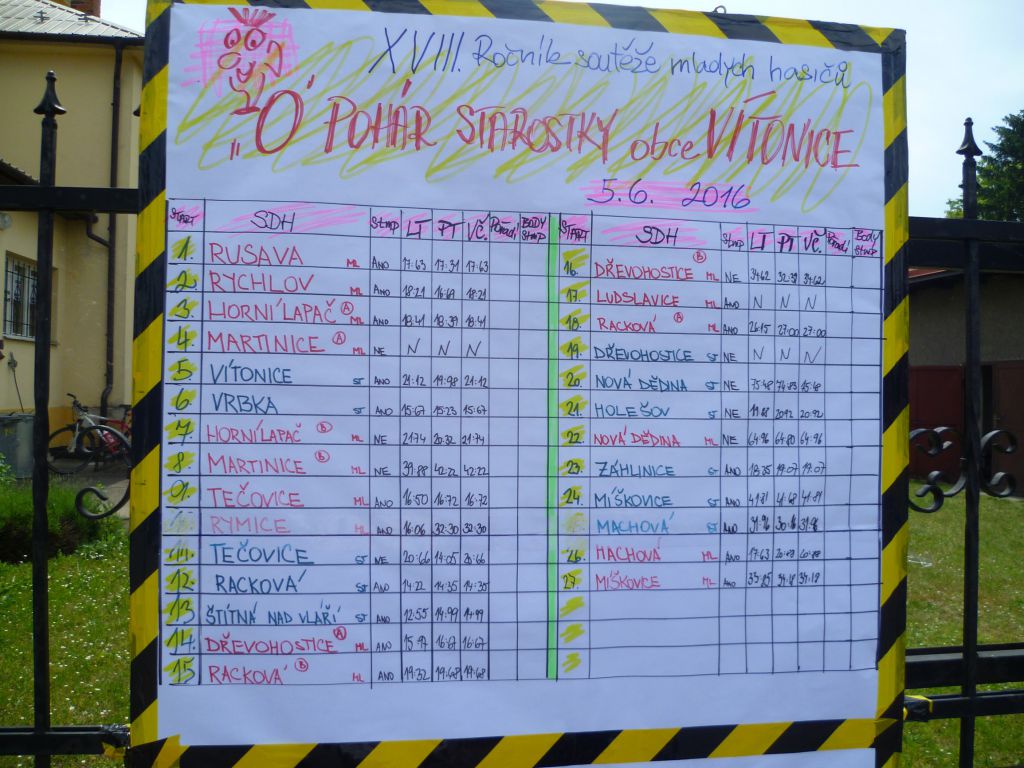 XVIII. Ročník soutěže mladých hasičů
"O POHÁR STAROSTKY obce VÍTONICE
5.6. 2016
START SDH Stmp LT PT VČ. Pořadí BODY Stmp
1. RUSAVA ML ANO 17:63 17:31 17:63
2. RYCHLOV ML ANO 18:21 16:69 18:21
3. HORNÍ LAPAČ A ML ANO 18:41 18:39 18:41
4. MARTINICE A ML NE N N N
5 VÍTONICE ST ANO 21:12 19:98 21:12
6 VRBKA ST ANO 15:67 15:23 15:67
7 HORNÍ LAPAČ B ML NE 21:74 20:32 21:74
8. MARTINICE B ML NE 39:88 42:22 42:22
TEČOVICE ML ANO 16:50 16:72 16:72
RYMICE ML ANO 16:06 32:30 32:30
TEČOVICE ST NE 20:66 14:05 20:66
12. RACKOVÁ ST ANO 14:22 14:35 14:35
13 ŠTÍTNÁ NAD VLÁŘÍ ST ANO 12:55 14:99 14:99
14. DŘEVOHOSTICE A ML ANO 15:97 16:67 16:67
15 RACKOVÁ B ML ANO 19:32 19:68 19:68
START SDH Stmp LT PT VČ. Pořadí Body Stmp
16. DŘEVOHOSTICE B ML NE 34:62 32:39 34:62
17. LUDSLAVICE ML ANO N N N
18. RACKOVÁ A ML ANO 26:15 27:00 27:00
19. DŘEVOHOSTICE ST NE N N N
20. NOVÁ DĚDINA ST NE
21. HOLEŠOV ST NE 20:92 20:92
22. NOVÁ DĚDINA ML NE 64:96 64:80 64:96
23. ZÁHLINICE ST ANO 18:35 19:07 19:07
24. MÍŠKOVICE ST ANO 41:81 41:68 41:81
MACHOVÁ ST ANO 31:96 30:16 31:96
26. MACHOVÁ ML ANO 17:63
27. MÍŠKOVICE ML ANO 34:18 34:18